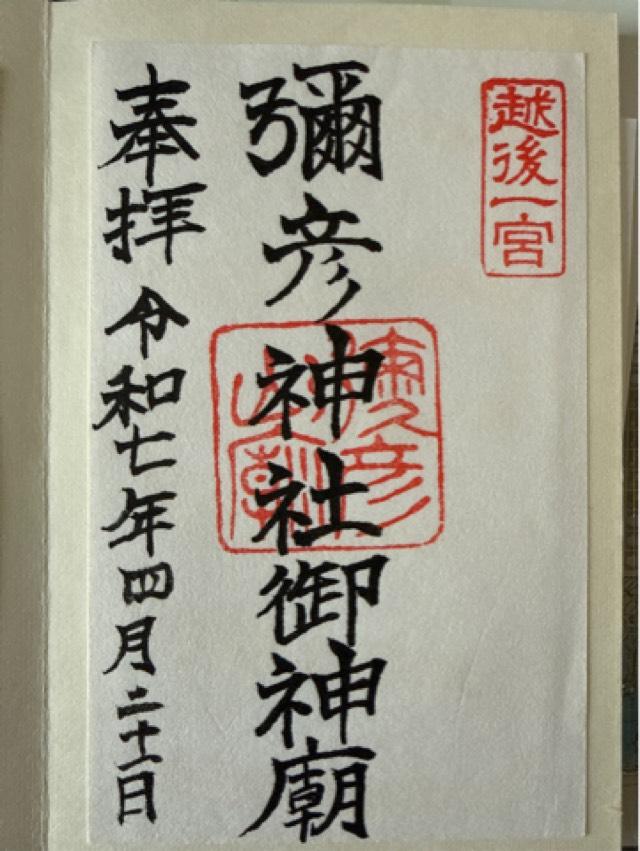 越後一宮
彌彦神社御神廟
奉拝 令和七年四月二十一日